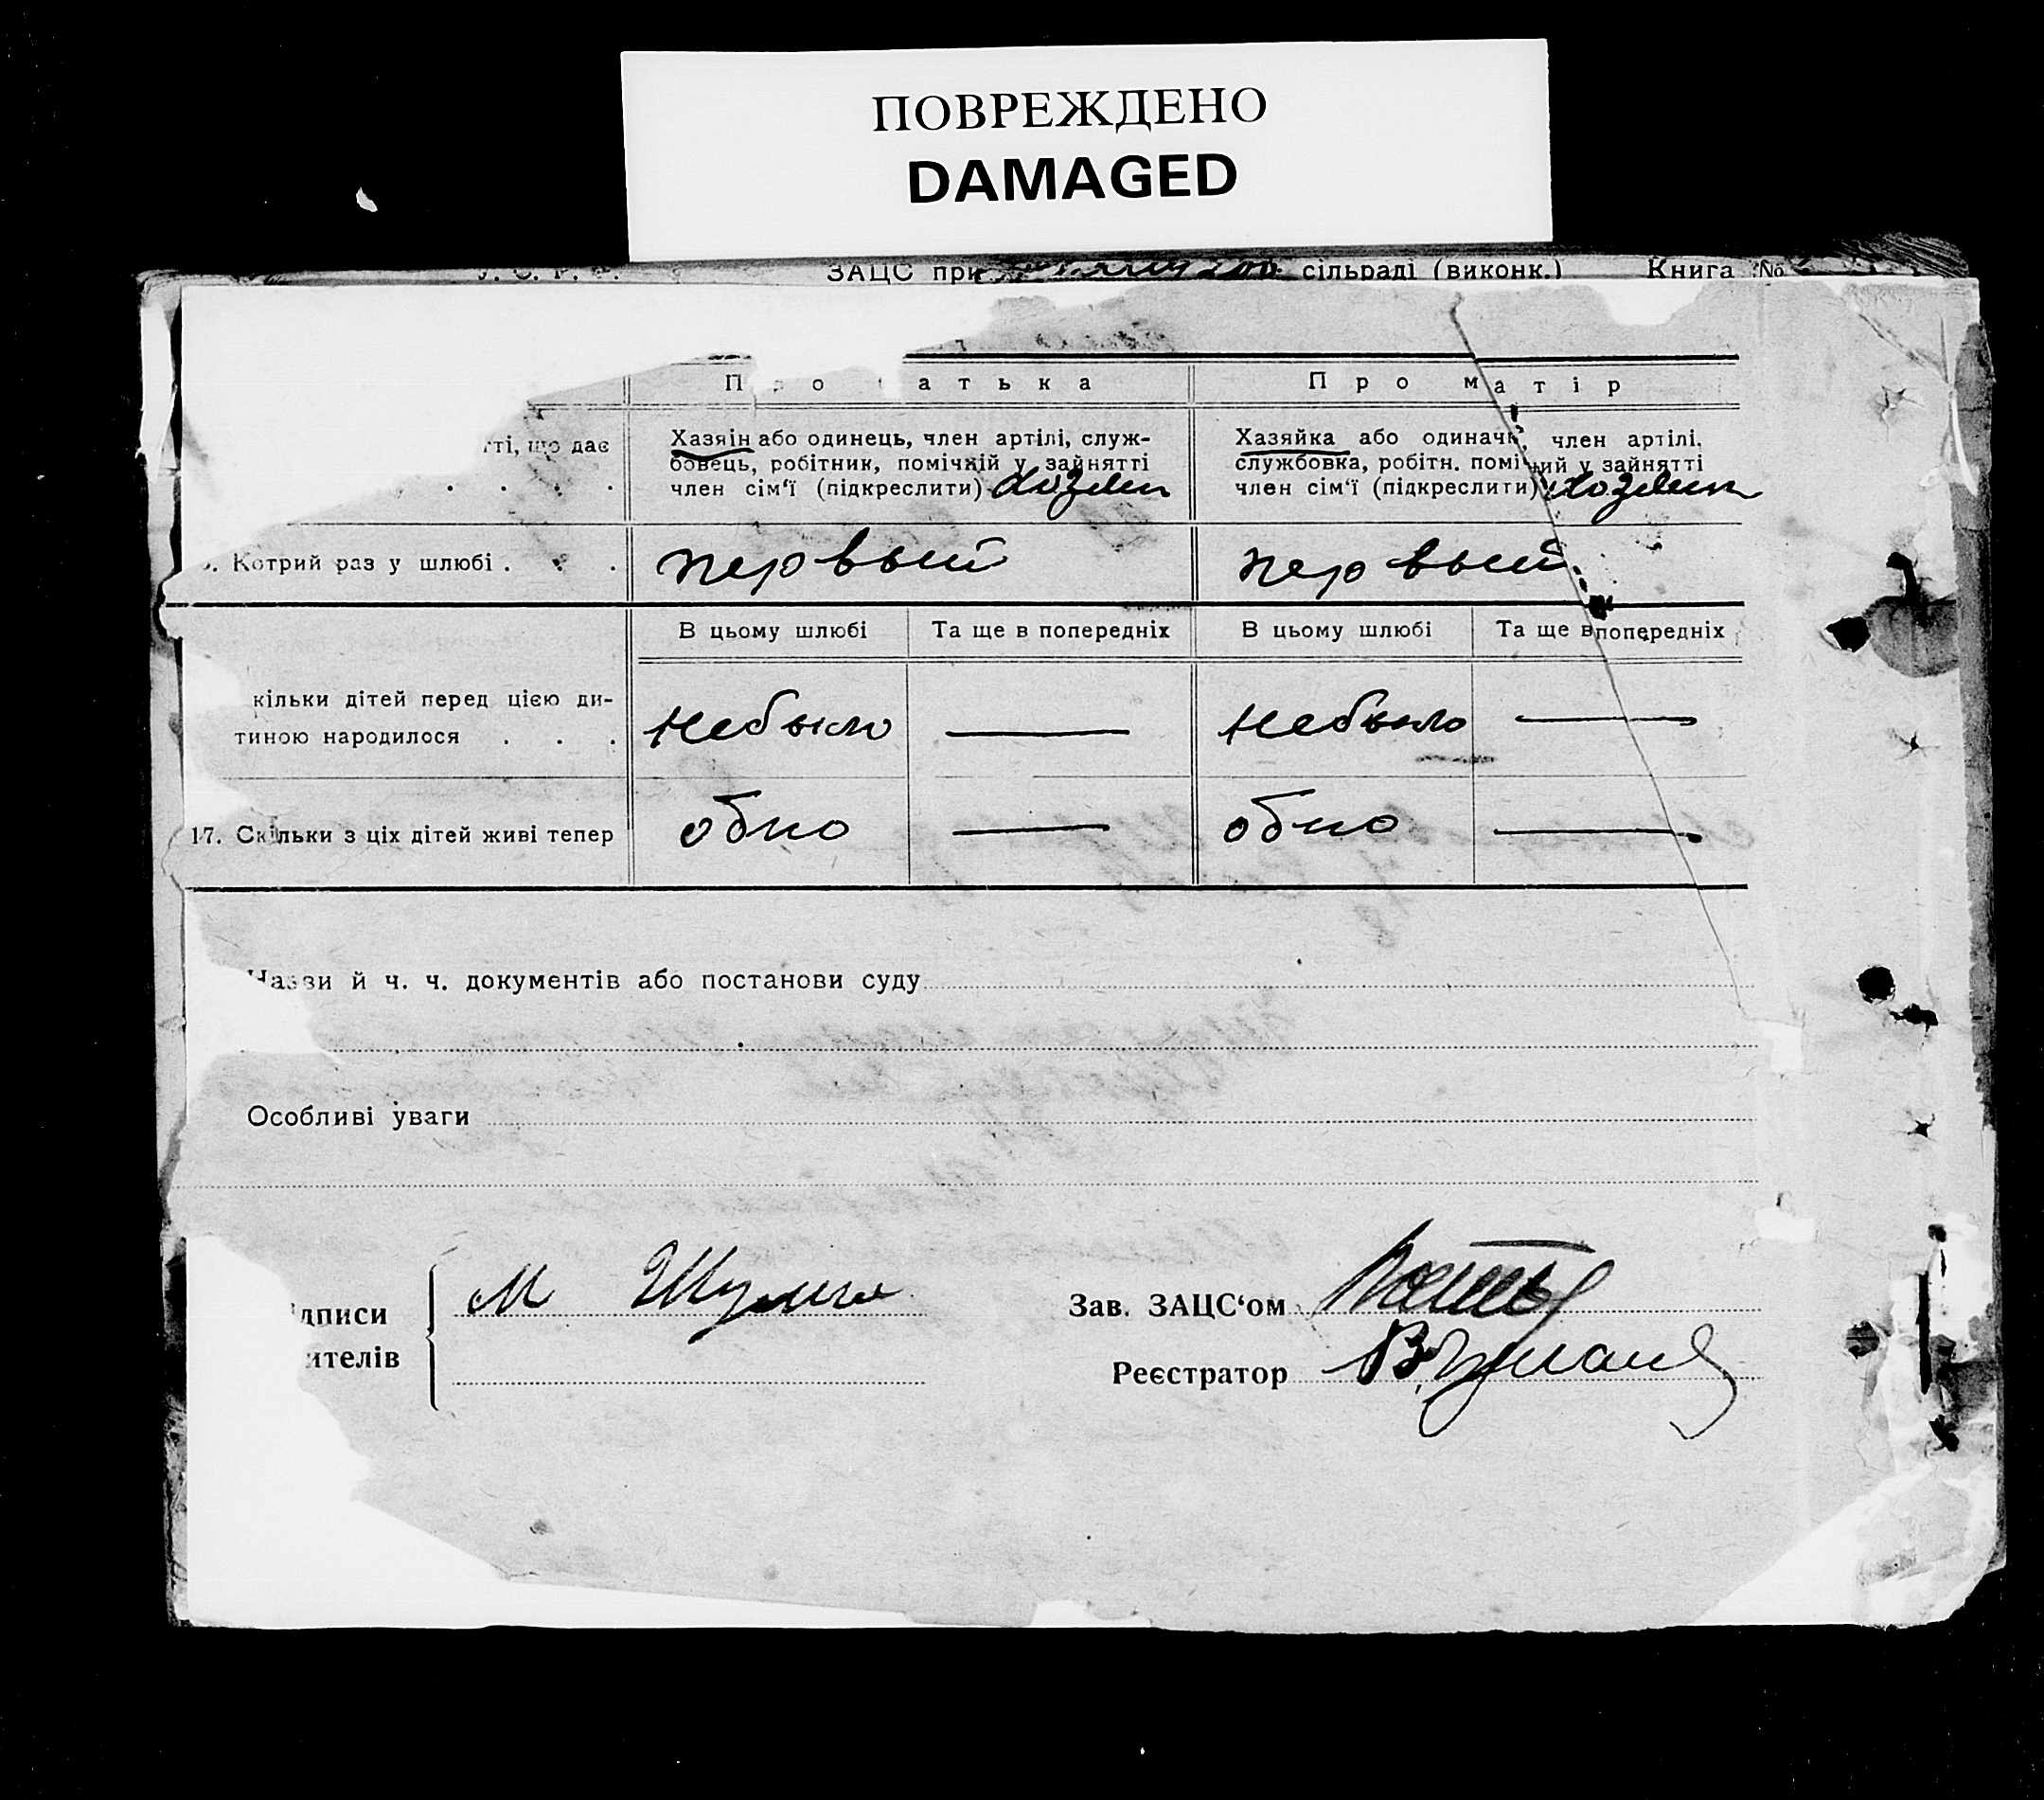 ПОВРЕЖДЕНО
DAMAGED
ЗАЦС при сільраді (виконк.) Книга №
Про матір
ті, що дає
Хазяїн або одинець, член артілі, служ-
бовець, робітник, помічний у зайнятті
член сім'ї (підкреслити)
Хазяйка або одиначка, член артілі,
службовка, робітн. помічний у зайнятті
член сім'ї (підкреслити)
Котрий раз у шлюбі
первый
первый
В цьому шлюбі
Та ще в попередніх
В цьому шлюбі
Та ще в попередніх
кільки дітей перед цією ди-
тиною народилося
небыло
небыло
17. Скільки з ціх дітей живі тепер
обно
обно
Назви й ч. ч. документів або постанови суду
Особливі уваги
дписи
ителів
М
Зав. ЗАЦС'ом
Реєстратор